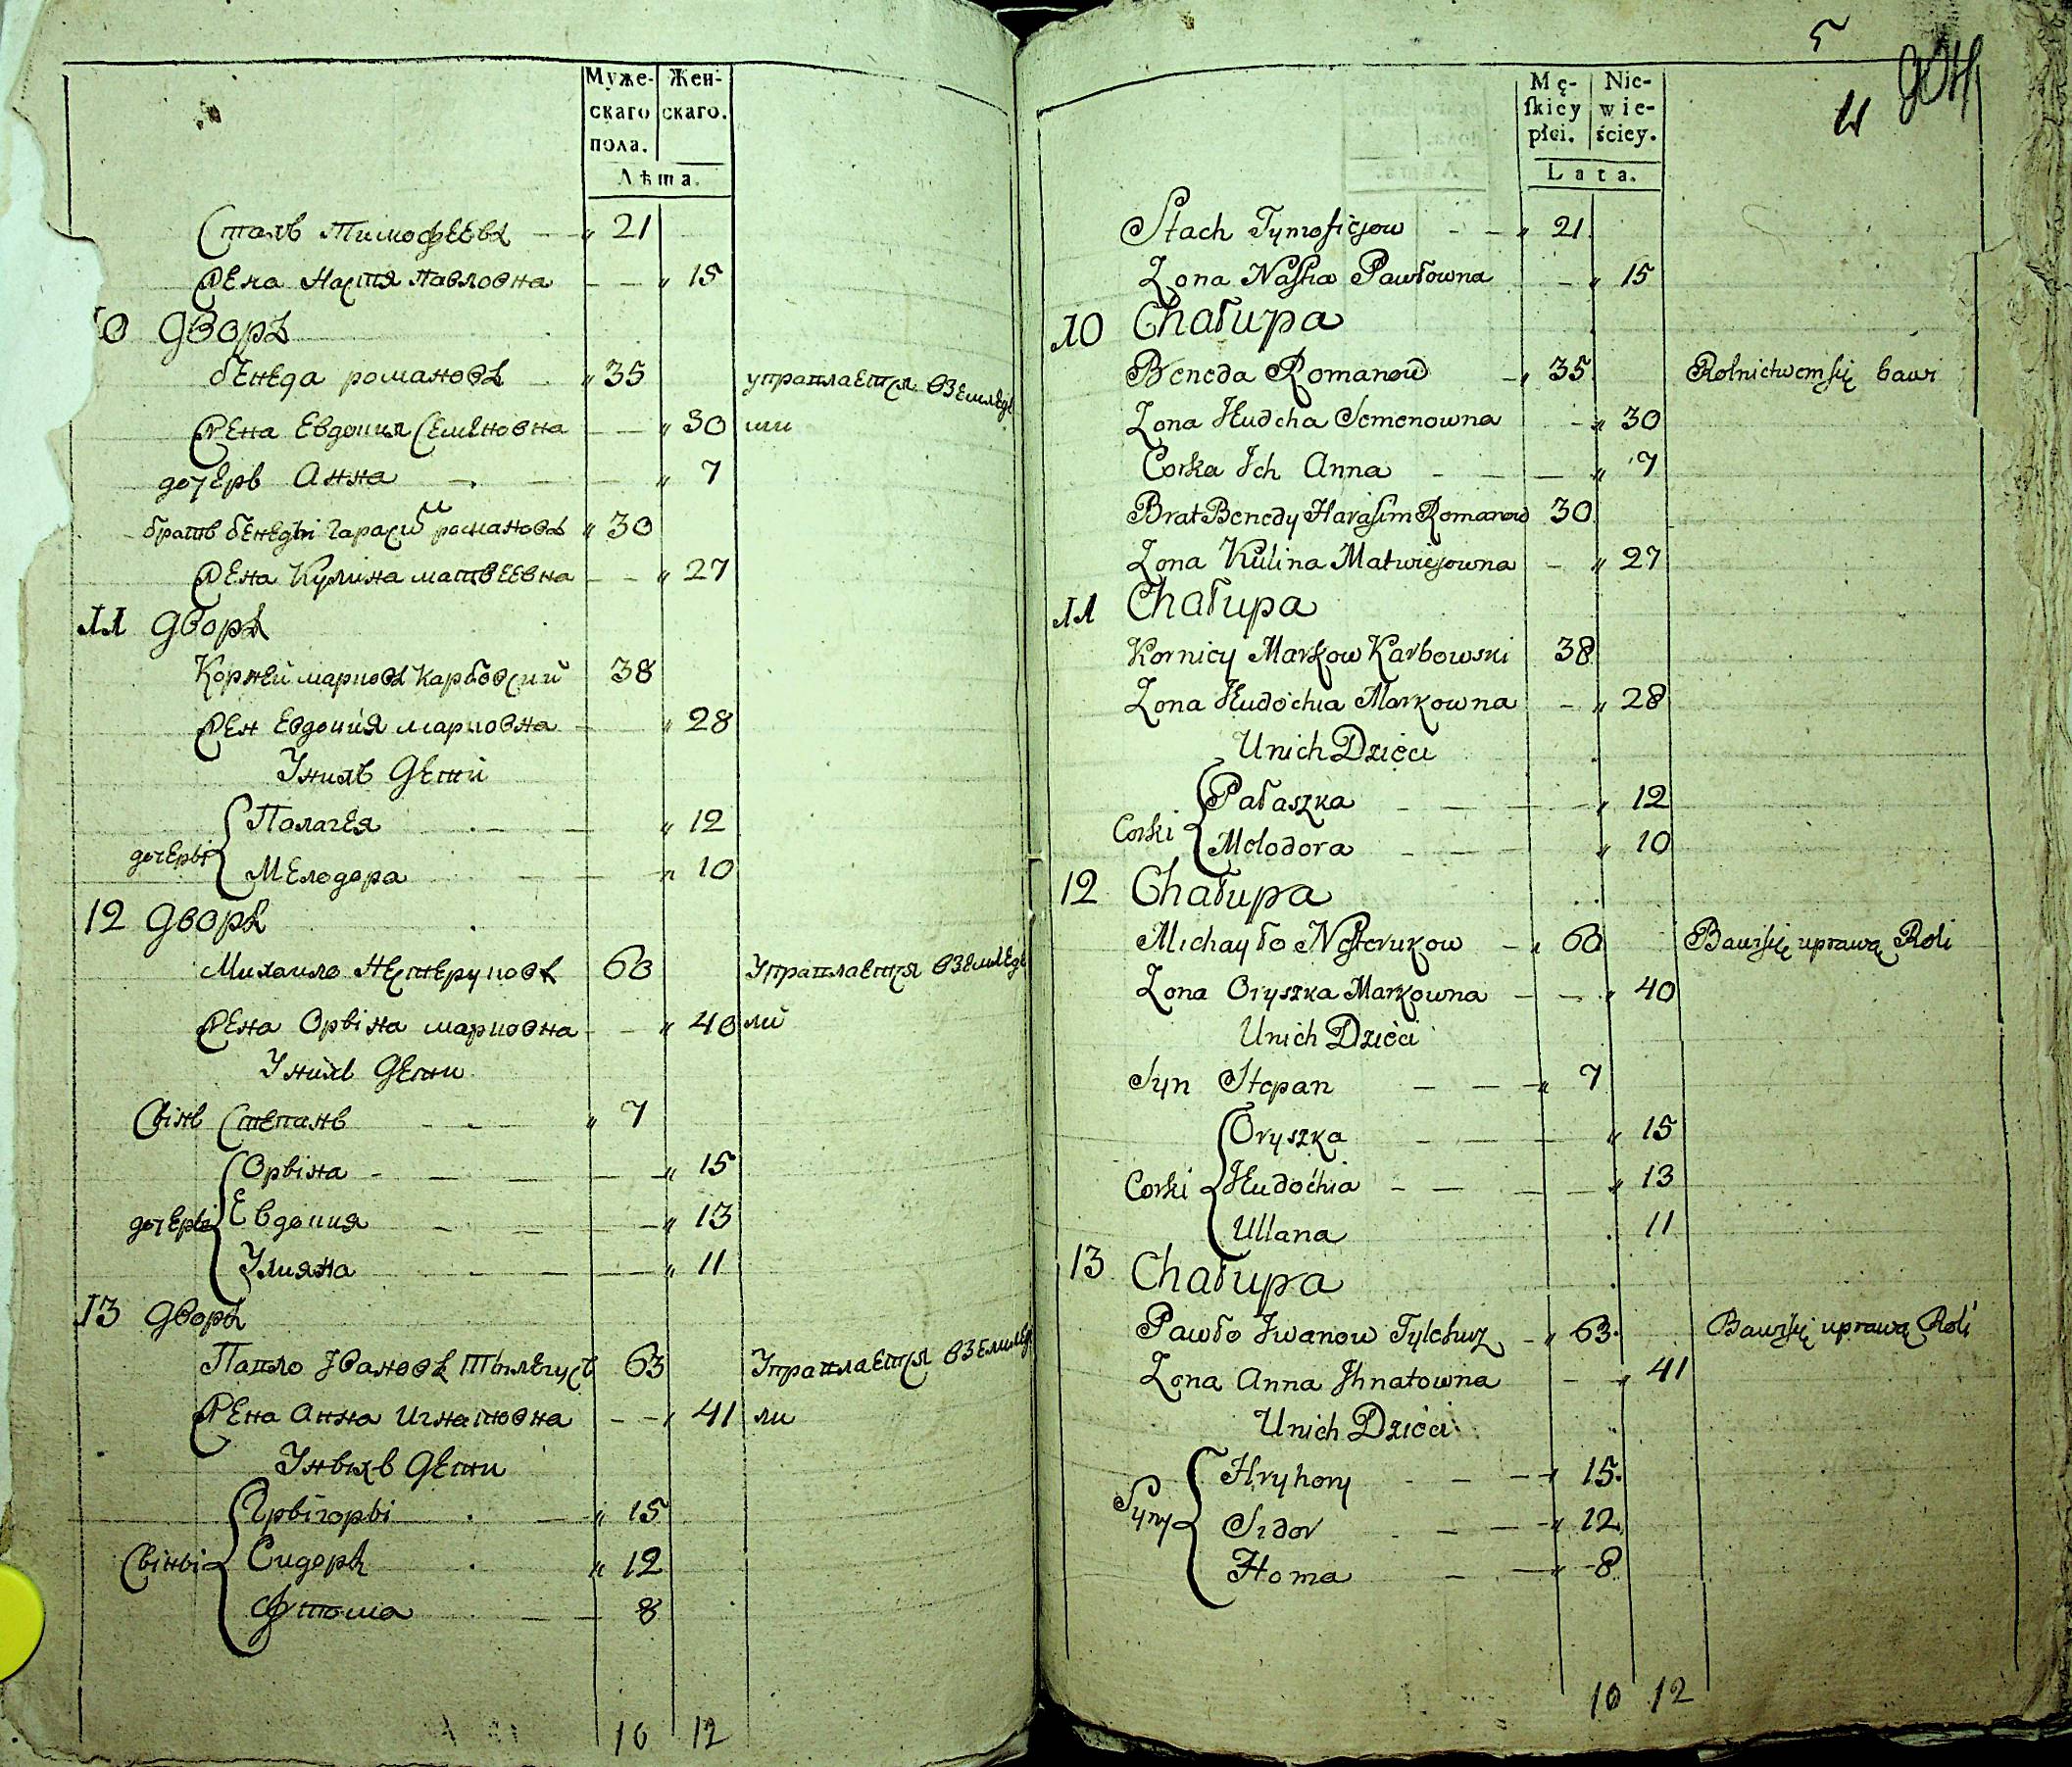 Муже-
скаго
пола.
Жен-
скаго.
Лѣта.
Стахъ Тимофеевъ 21
Жена Настя Павловна 15
10 дворъ
бенеда романовъ 35 упражлается вземледе
Жена Евдокия Семеновна 30 или
дочеръ Анна 7
братъ бенеды Гарасим романовъ 30
Жена Кулина матвеевна 27
11 дворъ
Корней марковъ Карбовский 38
Жен Евдокия марковна 28
Уних дети
Палагея 12
дочеры
Мелодора 10
12 дворъ
Михаило Нестеруковъ 60 Упражлается вземледе
Жена Орына марковна 40 ли
Уних дети
Сынъ Степанъ 7
Орына 15
дочеры Евдокия 13
Улияна 11
13 дворъ
Павло Ивановъ 63 Упражлается вземлед
Жена Анна Игнатовна 41 ли
Уных дети
Грыгоры 15
Сыны Сидоръ 12
Фтома 8
10 12
5
Mę-
skiey
płci.
Nie-
wie-
ściey.
Lata.
Stach Tymofiejow 21
Zona Nastia Pawłowna 15
10 Chałupa
Beneda Romanow 35 Rolnictwem się bawi
Zona Hudcha Semenowna 30
Corka Ich Anna 7
Brat Benedy Harasim Romanow 30
Zona Kulina Matwiejowna 27
11 Chałupa
Korniey Markow Karbowski 38
Zona Hudochia Markowna 28
Unich Dzieci
Pałaszka 12
Corki
Melodora 10
12 Chałupa
Michayło Nesterukow 60 Bawi się uprawą Roli
Zona Oryszka Markowna 40
Unich Dzieci
Syn Stepan 7
Oryszka 15
Corki Hudochia 13
Ullana 11
13 Chałupa
Pawło Iwanow Tylchuz 63 Bawi się uprawą Roli
Zona Anna Ihnatowna 41
Unich Dzieci
Hryhory 15
Syny Sidor 12
Homa 8
10 12